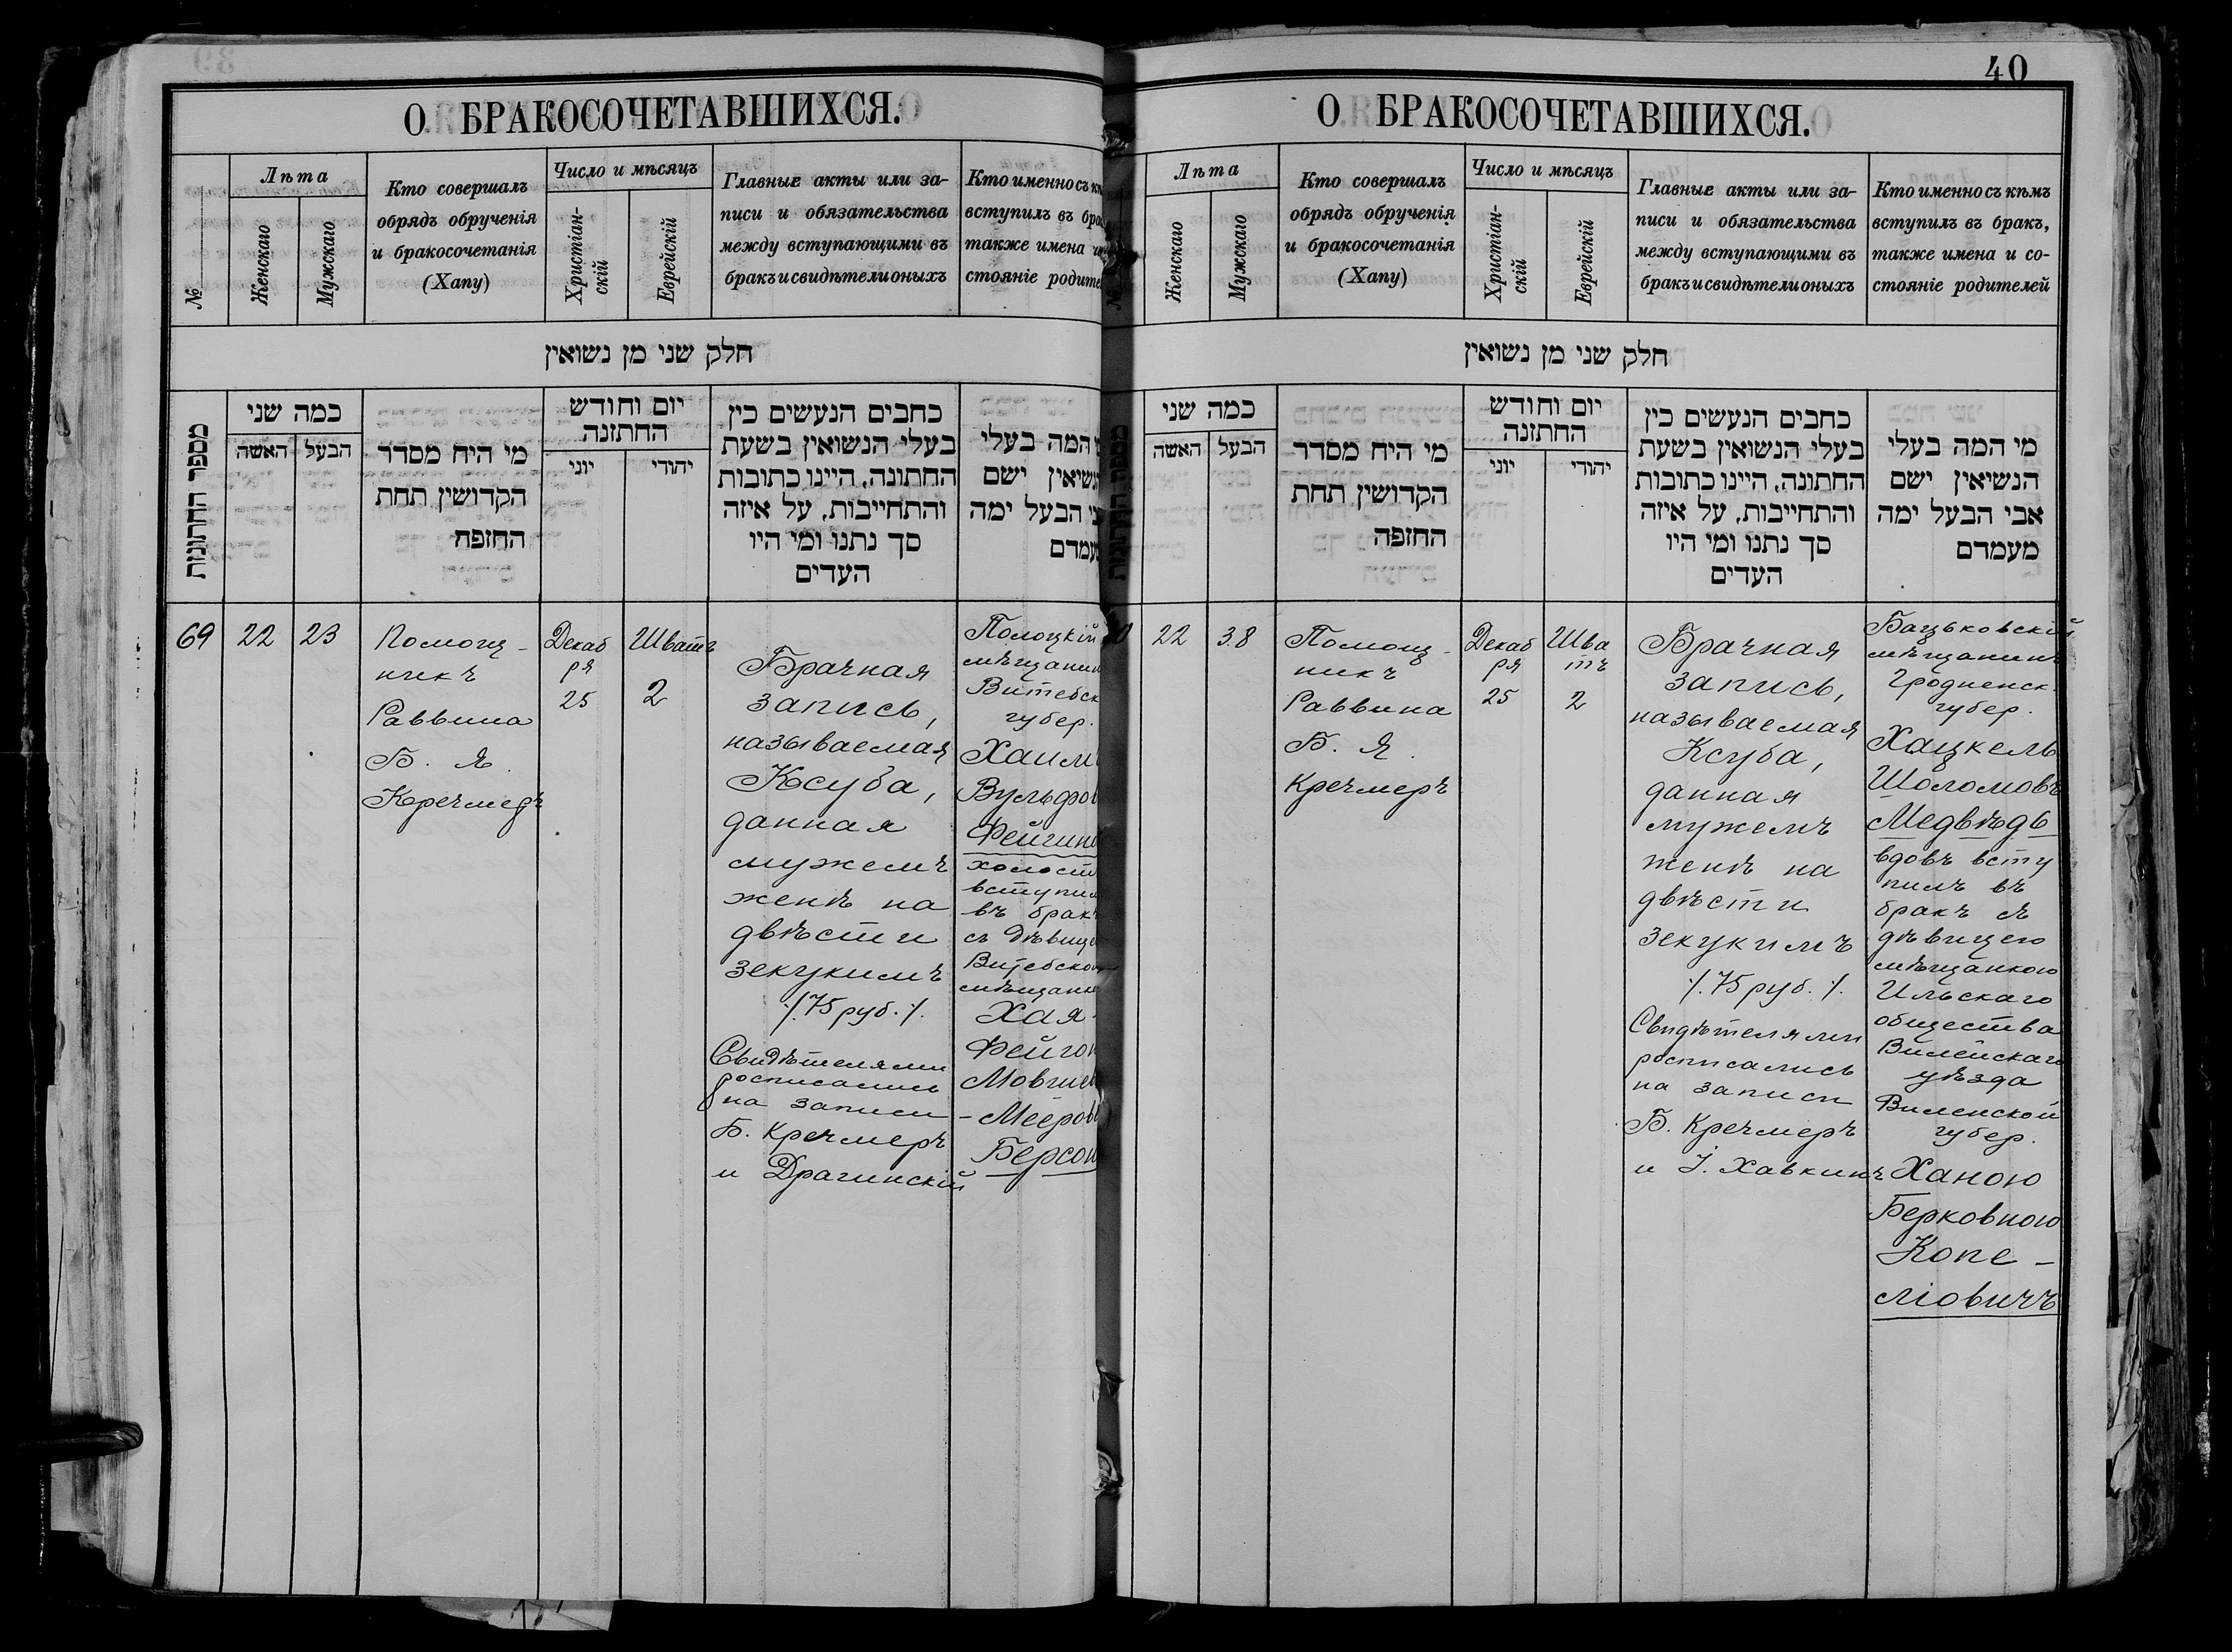 О БРАКОСОЧЕТАВШИХСЯ.
№
Лѣта
Женскаго
Мужскаго
Кто совершалъ
обрядъ обрученія
и бракосочетанія
(Хапу)
Число и мѣсяцъ
Христіан-
скій
Еврейскій
Главные акты или за-
писи и обязательства
между вступающими въ
бракъ и свидѣтели оныхъ
Кто именно съ
вступилъ въ
также имена
стояніе
חלק שני מן נשואין
מספר החתונות
כמה שני
האשה
הבעל
מי היח מסדר
הקדושין תחת
החזפח
יום וחודש
החתזנה
יוני
יהודי
כחבים הנעשים כין
בעלי הנשואין בשעת
החתונה, היינו כתובות
והתחייבות, על איזה
סך נתנו ומי היו
העדים
המה בעלי
ישם
הבעל ימה
69
22
23
Помощ-
никъ
Раввина
Б. Я.
Кречмеръ
Декаб
ря
25
Шватъ
2
Брачная
запись,
называемая
Ксуба,
данная
мужемъ
женѣ на
двѣсти
зекукимъ
/.75 руб./.
Свидѣтелями
росписались
на записи
Б. Кречмеръ
и Драгинскій
Полоцкій
мѣщанин
Витебск
губер.
Хаим
Вульфов
Фейгин
холост
вступил
въ брак
съ дѣвице
Витебско
мѣщанк
Хая-
Фейго
Мовшев
-Мееров
Берсон
40
О БРАКОСОЧЕТАВШИХСЯ.
Лѣта
Женскаго
Мужскаго
Кто совершалъ
обрядъ обрученія
и бракосочетанія
(Хапу)
Число и мѣсяцъ
Христіан-
скій
Еврейскій
Главные акты или за-
писи и обязательства
между вступающими въ
бракъ и свидѣтели оныхъ
Кто именно съ кѣмъ
вступилъ въ бракъ,
также имена и со-
стояніе родителей
חלק שני מן נשואין
כמה שני
האשה
הבעל
מי היח מסדר
הקדושין תחת
החזפה
יום וחודש
החתזנה
יוני
יהודי
כחבים הנעשים כין
בעלי הנשואין בשעת
החתונה, היינו כתובות
והתחייבות, על איזה
סך נתנו ומי היו
העדים
מי המה בעלי
הנשיאין ישם
אבי הבעל ימה
מעמדם
22
38
Помощ-
никъ
Раввина
Б. Я.
Кречмеръ
Декаб
ря
25
Шва
тъ
2
Брачная
запись,
называемая
Ксуба,
данная
мужемъ
женѣ на
двѣсти
зекукимъ
/.75 руб./.
Свидѣтелями
росписались
на записи
Б. Кречмеръ
и І. Хавкинъ
Бацьковскій
мѣщанинъ
Гродненск.
губер.
Хацкель
Шоломовъ
Медвѣдь
вдовъ всту
пилъ въ
бракъ съ
дѣвицею
мѣщанкою
Ильскаго
общества
Вилейскаго
уѣзда
Виленской
губер.
Ханою
Берковною
Копе-
ліовичъ